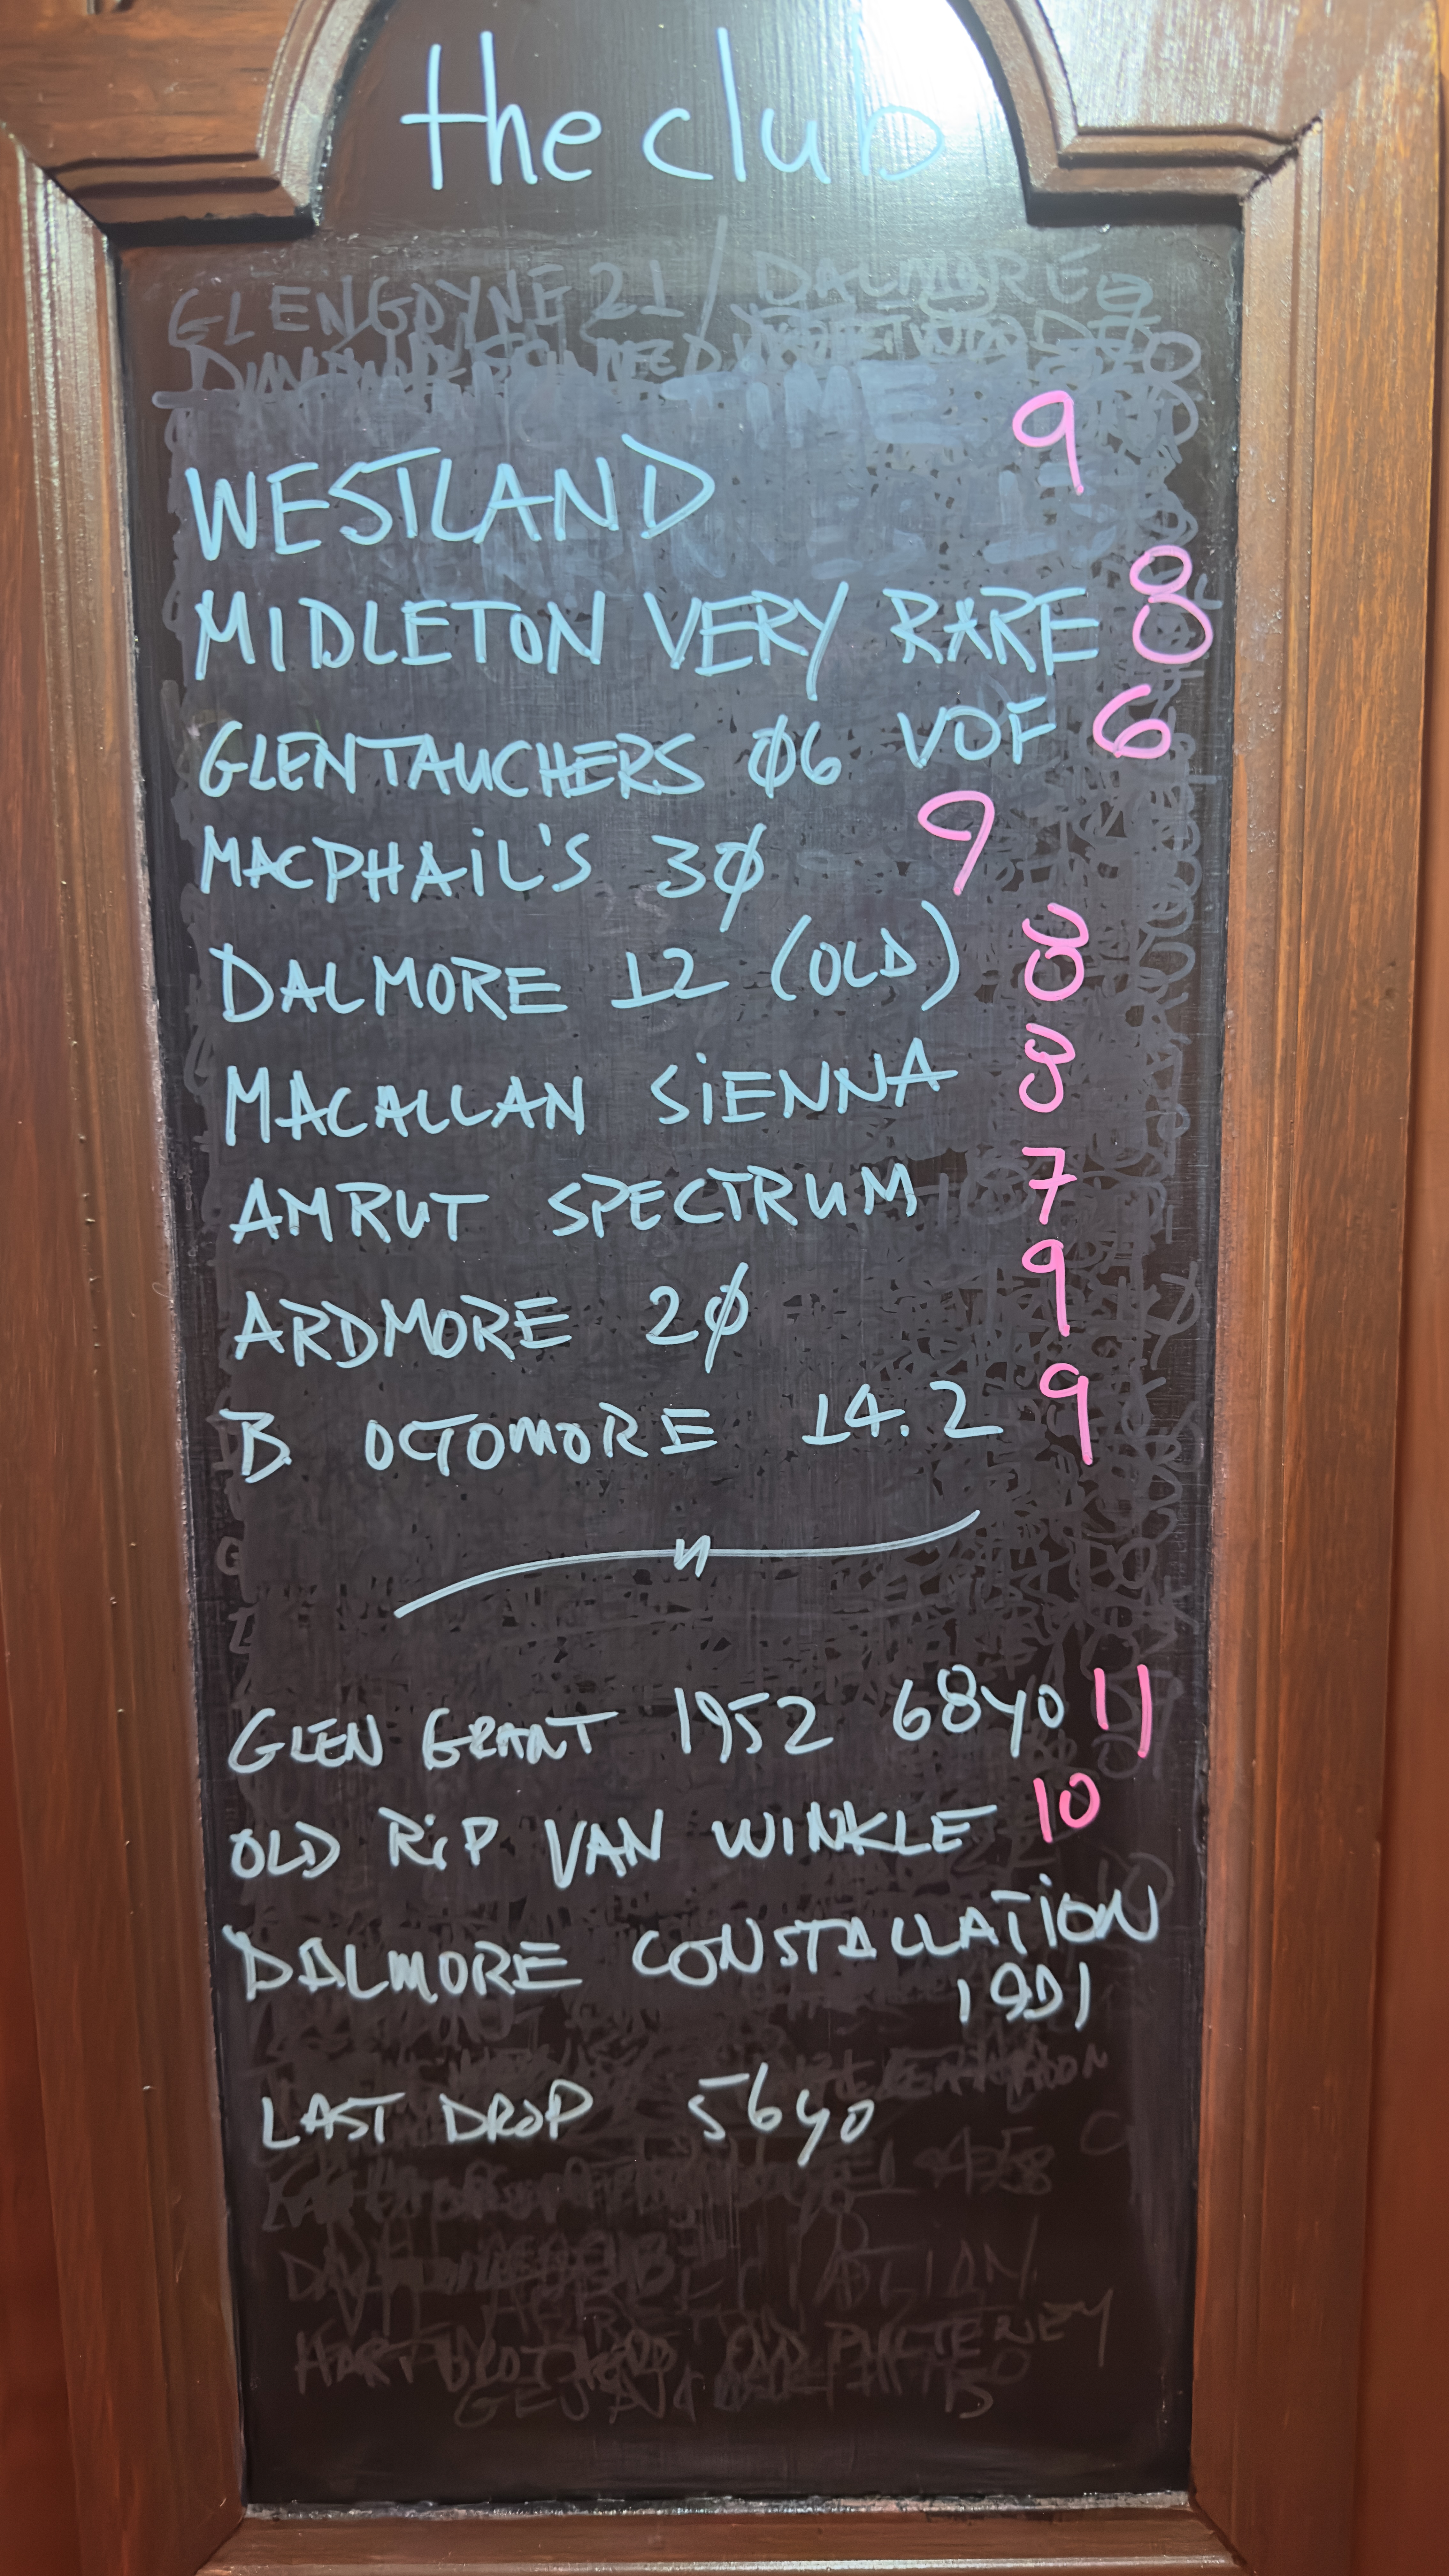 the club
WESTLAND 9
MIDLETON VERY RARE 8
GLENTAUCHERS 06 VOF 6
MACPHAIL'S 30 9
DALMORE 12 (OLD) 8
MACALLAN SIENNA 8
AMRUT SPECTRUM 7
ARDMORE 20 9
B OCTOMORE 14.2 9
GLEN GRANT 1952 68yo 11
OLD RIP VAN WINKLE 10
DALMORE CONSTALLATION
1991
LAST DROP 56yo